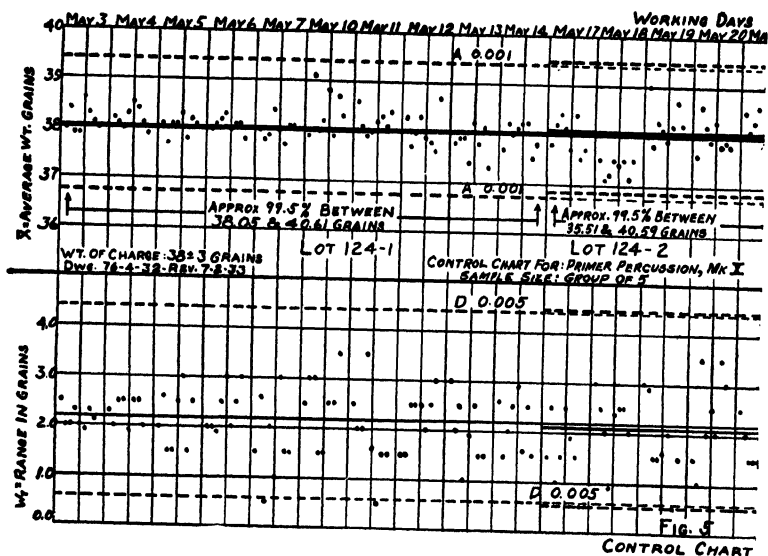 WORKING DAYS
MAY 3 MAY 4 MAY 5 MAY 6 MAY 7 MAY 10 MAY 11 MAY 12 MAY 13 MAY 14 MAY 17 MAY 18 MAY 19 MAY 20 MA
40
A 0.001
39
38
37
A 0.001
36
X̄=AVERAGE WT. GRAINS
APPROX 99.5% BETWEEN
38.05 & 40.61 GRAINS
APPROX. 99.5% BETWEEN
35.51 & 40.59 GRAINS
LOT 124-1
LOT 124-2
WT. OF CHARGE: 38±3 GRAINS
DWG. 76-4-32-REV. 7-2-33
CONTROL CHART FOR: PRIMER PERCUSSION, MK V
SAMPLE SIZE: GROUP OF 5
D 0.005
4.0
3.0
2.0
1.0
0.0
W,=RANGE IN GRAINS
D 0.005
FIG. 5
CONTROL CHART